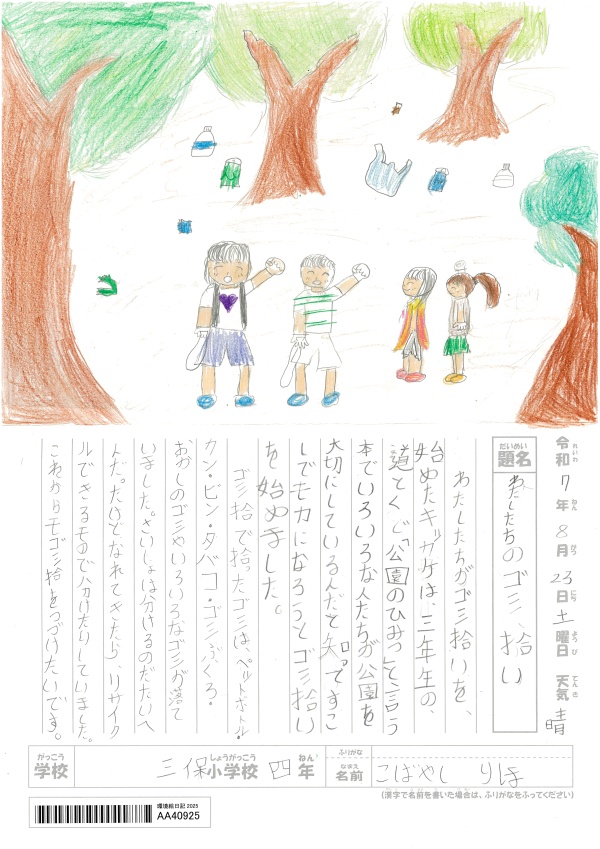 令和 7 年 8 月 23 日 土 曜日 天気 晴
れいわ ねん がつ にち ようび てんき
だいめい
題名
わたしたちのゴミ拾い
わたしたちがゴミ拾いを、
始めたキッカケは、三年生の、
道とくで「公園のひみつ」と言う
本でいろいろな人たちが公園を
大切にしているんだと知ってすこ
しでも力になろうとゴミ拾い
を始めました。
ゴミ拾で拾たゴミは、ペットボトル・
カン・ビン・タバコ・ゴミぶくろ・
おかしのゴミやいろいろなゴミが落て
いました。さいしょは分けるのがたいへ
んだ。たけどなれてきたら、リサイク
ルできるもので分けたりしていました。
これからもゴミ拾をつづけたいです。
がっこう
学校
三保小学校 四年
しょうがっこう ねん
ふりがな
なまえ
名前
こばやし りほ
(漢字で名前を書いた場合は、ふりがなをふってください)
環境絵日記 2025
AA40925